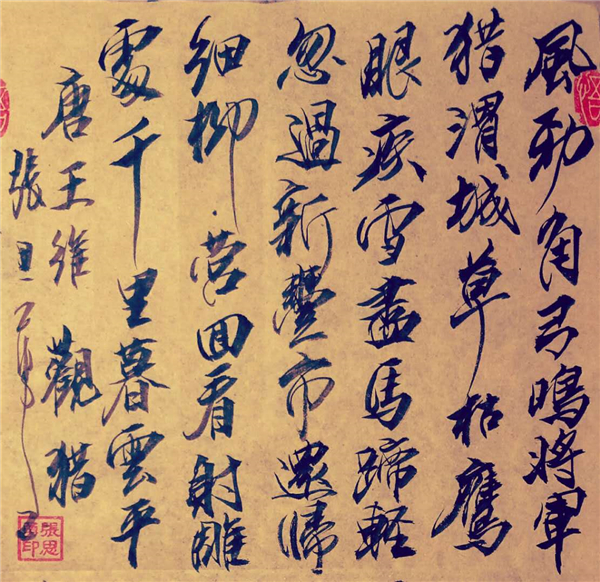 風勁角弓鳴將軍
猎渭城草枯鷹
眼疾雪盡馬蹄軽
忽過新豐市還帰
细柳营回看射雕
處千里暮雲平
唐王維 觀猎
張思